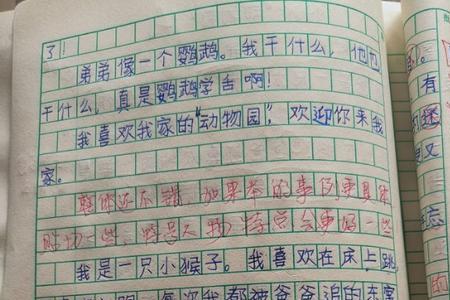 了！
弟弟像一个鹦鹉。我干什么，他也
干什么，真是鹦鹉学舌啊！
我喜欢我家的“动物园”，欢迎你来我
家。
整体还不错，如果举的事例更具体
些，特点会更好一些
我是一只小猴子。我喜欢在床上跳
每次我都被爸爸追的
有
迷
又